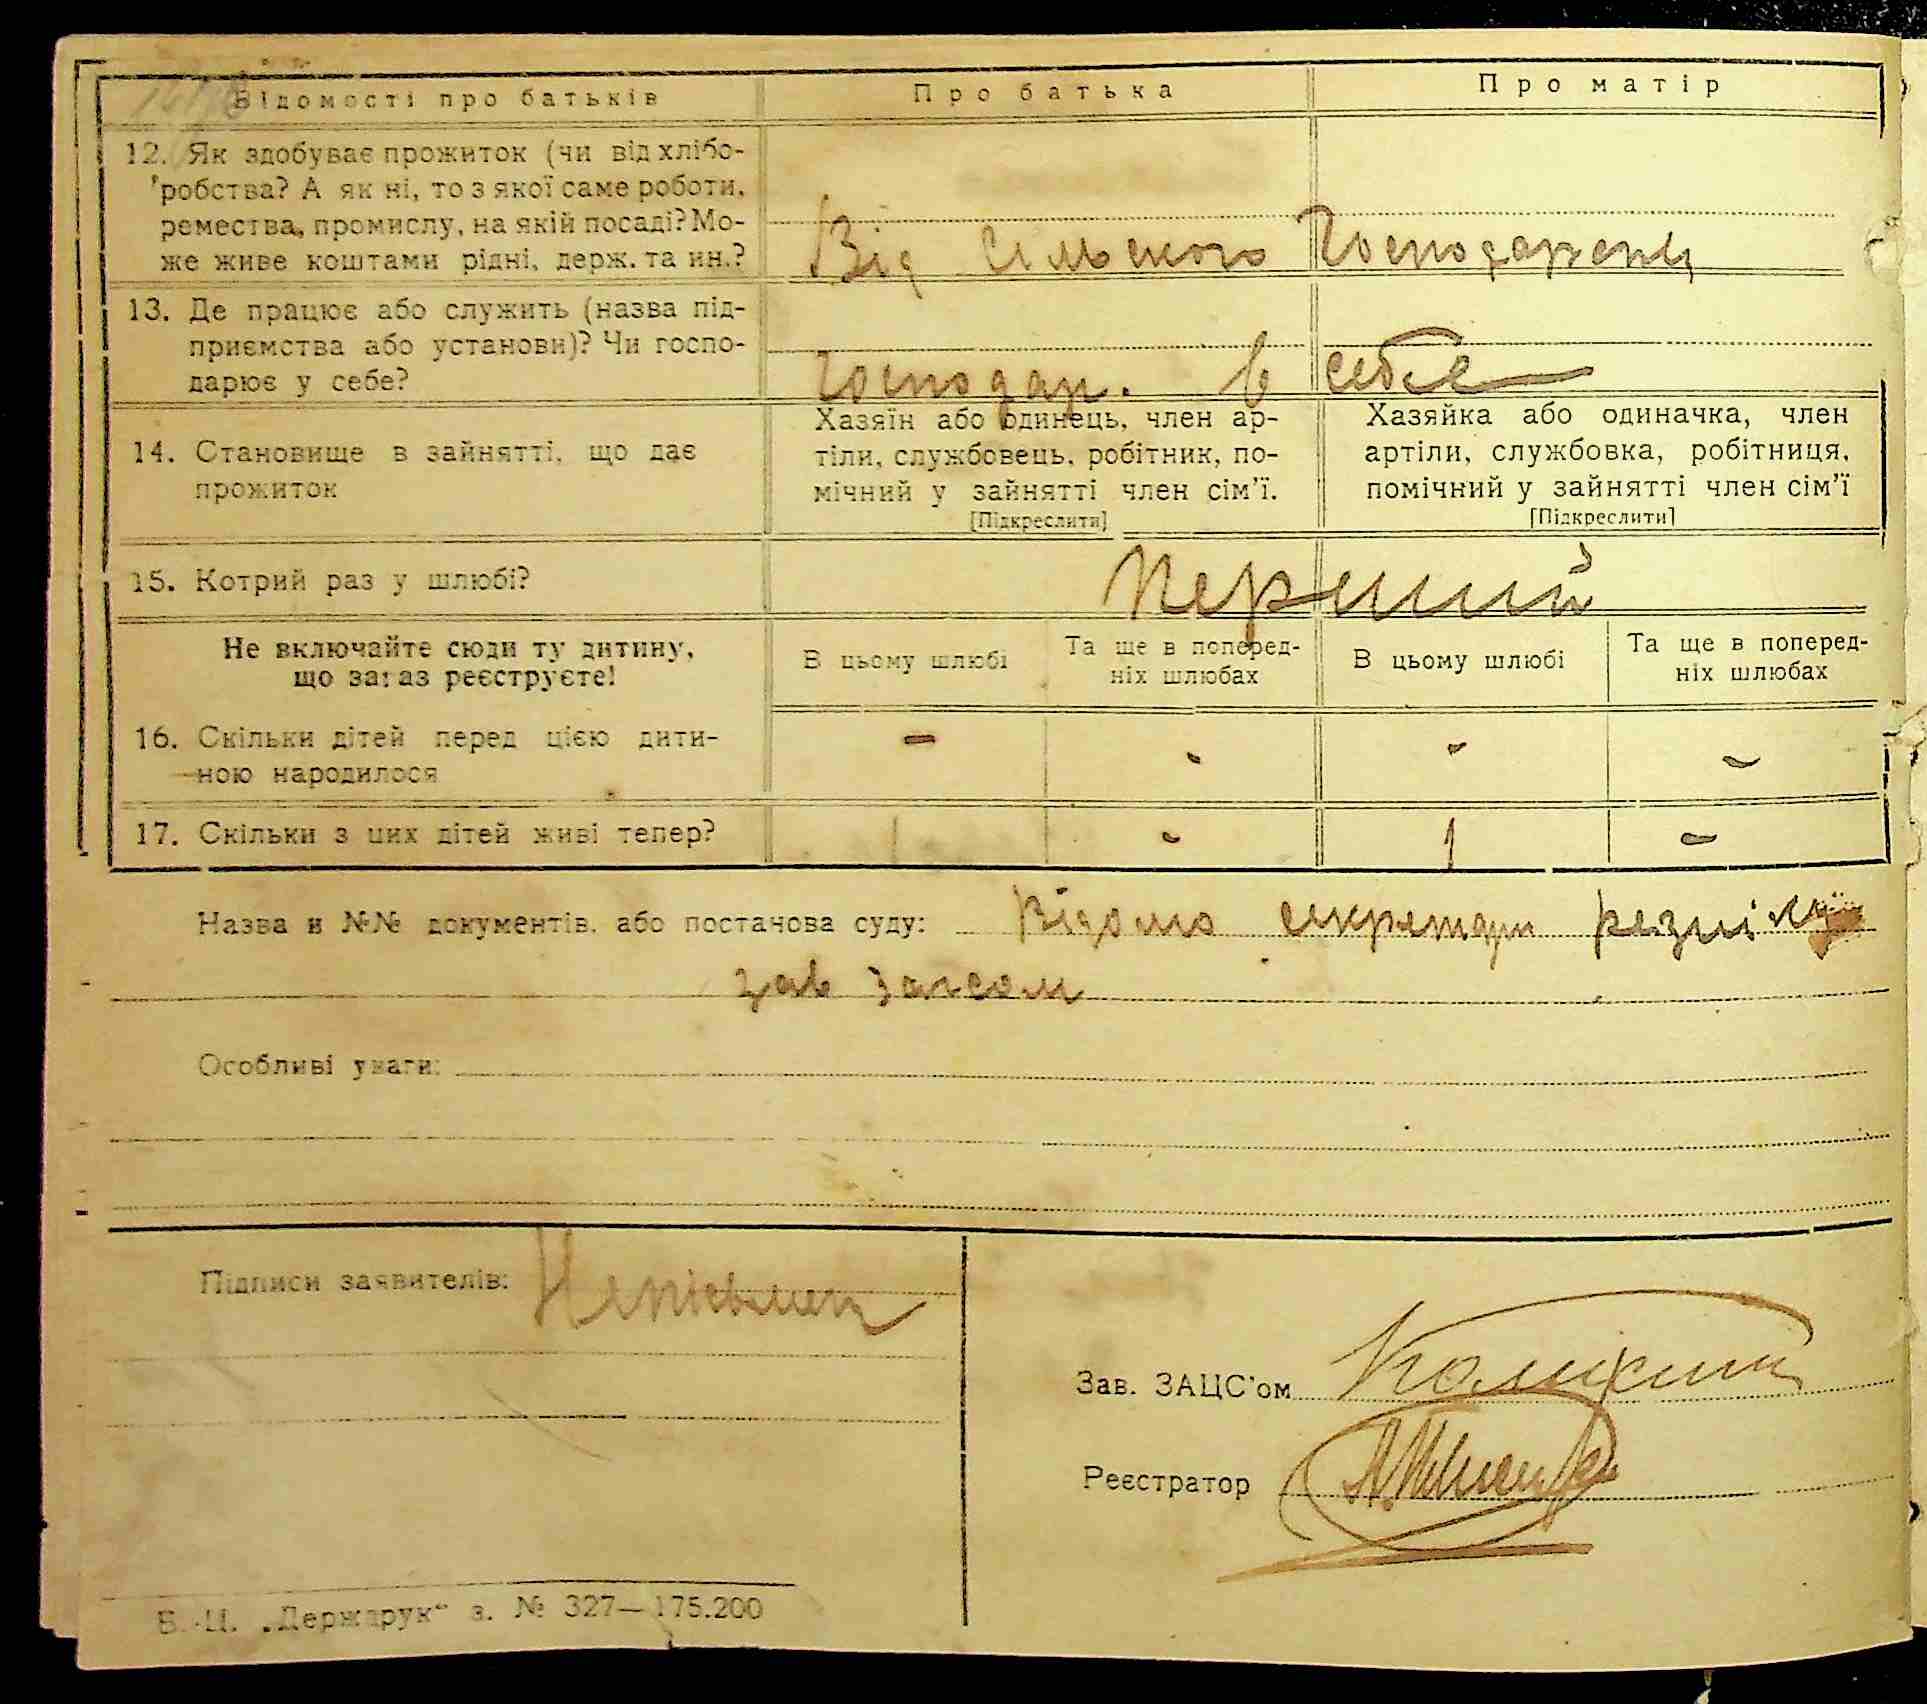 Відомості про батьків
Про батька
Про матір
12. Як здобуває прожиток (чи від хлібо-
робства? А як ні, то з якої саме роботи,
ремества, промислу, на якій посаді? Мо-
же живе коштами рідні, держ. та ин.?
Від сільского господарства
13. Де працює або служить (назва під-
приємства або установи)? Чи госпо-
дарює у себе?
Господар. в себе
14. Становище в зайнятті, що дає
прожиток
Хазяїн або одинець, член ар-
тіли, службовець, робітник, по-
мічний у зайнятті член сім'ї.
[Підкреслити]
Хазяйка або одиначка, член
артіли, службовка, робітниця,
помічний у зайнятті член сім'ї
[Підкреслити]
15. Котрий раз у шлюбі?
Перший
Не включайте сюди ту дитину,
що зараз реєструєте!
В цьому шлюбі
Та ще в поперед-
ніх шлюбах
В цьому шлюбі
Та ще в поперед-
ніх шлюбах
16. Скільки дітей перед цією дити-
ною народилося
- - - -
17. Скільки з цих дітей живі тепер?
1 - 1 -
Назва и №№ документів, або постанова суду: Відомо секретарю
зав загсом
Особливі уваги:
Підписи заявителів:
Зав. ЗАЦС'ом
Реєстратор
Б.-Ц. „Держдрук“ з. № 327—175.200